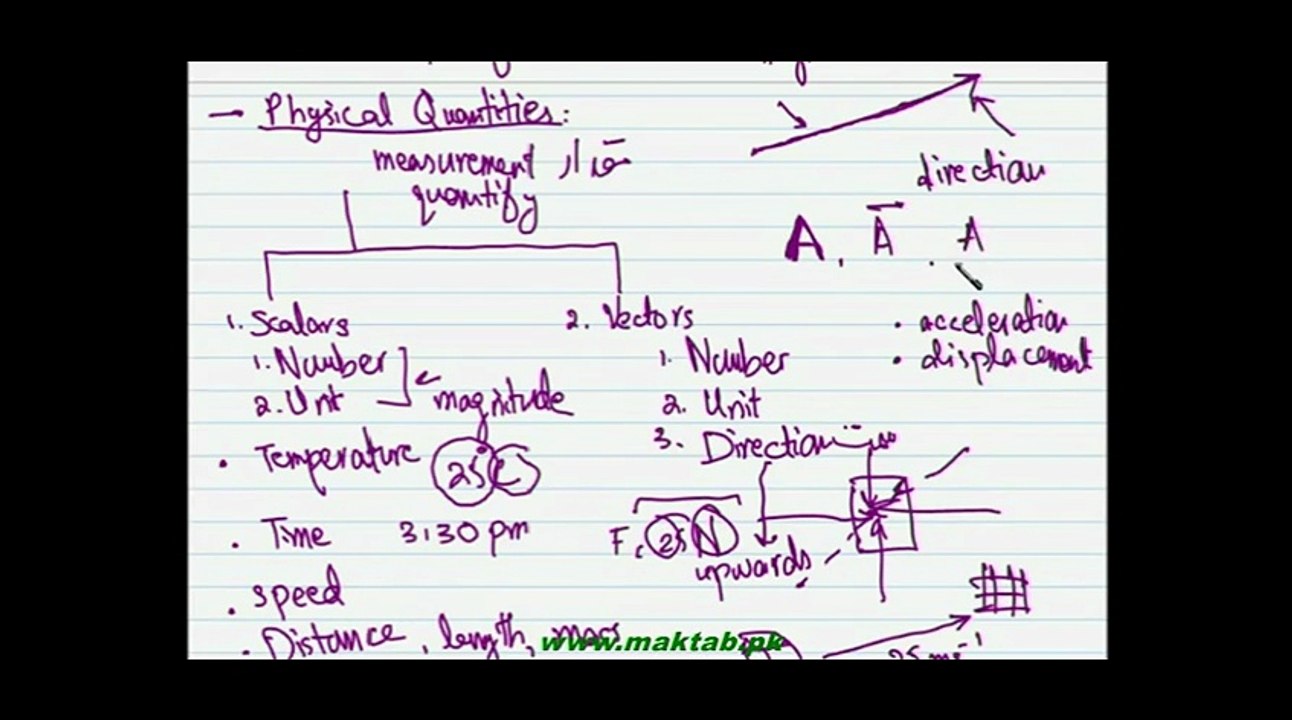 – Physical Quantities:
measurement مقدار
quantify
1. Scalars
1. Number
2. Unit
magnitude
• Temperature 25°C
• Time 3:30 pm
• speed
• Distance, length, mass
2. Vectors
1. Number
2. Unit
3. Direction
F, 25 N
upwards
direction
A, A⃗, A
• acceleration
• displacement
25 ms⁻¹
www.maktab.pk